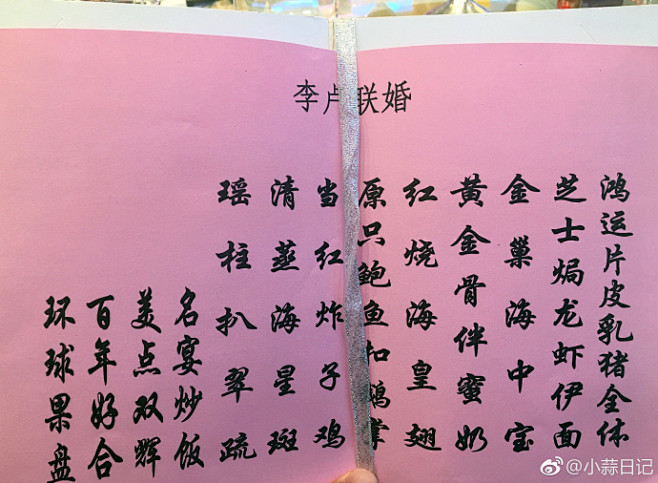 李卢联婚
鸿运片皮乳猪全体
芝士焗龙虾伊面
金巢海中宝
黄金骨伴蜜奶
红烧海皇翅
原只鲍鱼扣鹅掌
当红炸子鸡
清蒸海星斑
瑶柱扒翠疏
名宴炒饭
美点双辉
百年好合
环球果盘
@小蒜日记